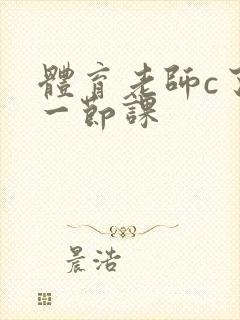 體育老師c了
一節課
晨浩